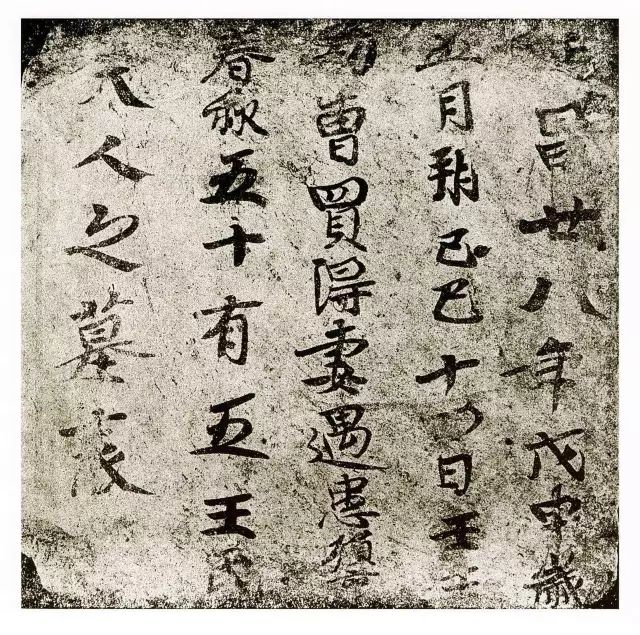 昌廿八年戊申歲
五月朔己巳十四日壬午
曹買得妻遇患殞
春秋五十有五王氏
夫人之墓表